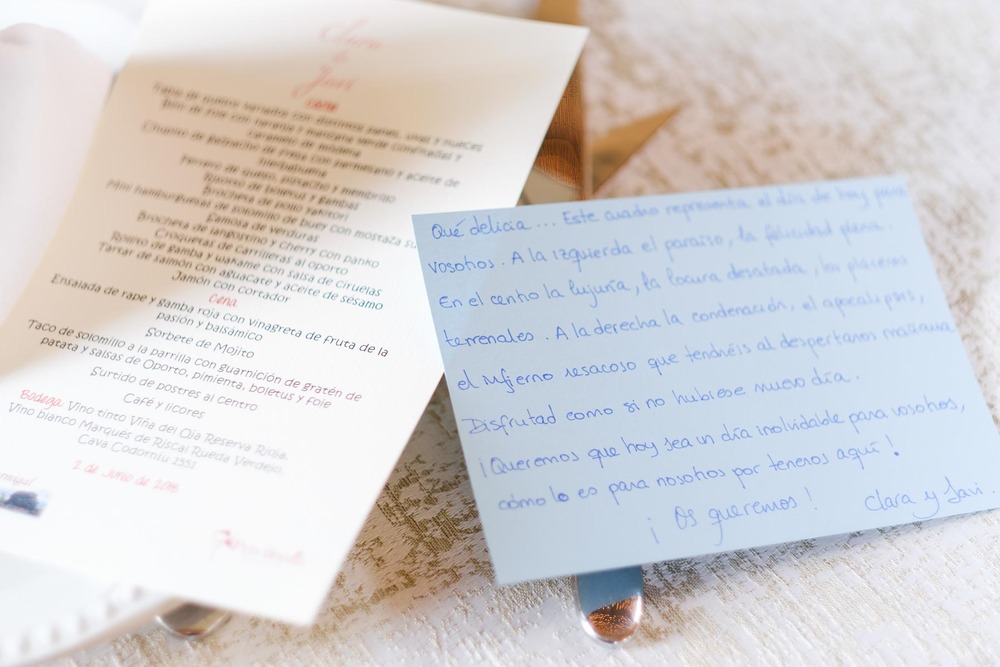 Clara
&
Javi
Carta
Tabla de quesos variados con distintos panes, uvas y nueces
Bolo de foie con naranja y manzana verde confitadas y
caramelo de módena
Chupito de gazpacho de fresa con parmesano y aceite de
hierbabuena
Ferrero de queso, pistacho y membrillo
Rissoto de boletus y gambas
Brocheta de pollo yakitori
Mini hamburguesas de solomillo de buey con mostaza
Samosa de verduras
Brocheta de langostino y cherry con panko
Croquetas de carrilleras al oporto
Rollito de gamba y wakame con salsa de ciruelas
Tartar de salmón con aguacate y aceite de sésamo
Jamón con cortador
Cena
Ensalada de rape y gamba roja con vinagreta de fruta de la
pasión y balsámico
Sorbete de Mojito
Taco de solomillo a la parrilla con guarnición de gratén de
patata y salsas de Oporto, pimienta, boletus y foie
Surtido de postres al centro
Café y licores
Bodega Vino tinto Viña del Oja Reserva Rioja.
Vino blanco Marqués de Riscal Rueda Verdejo.
Cava Codorniu 1551
2 de Junio de 2018
Qué delicia... Este cuadro representa el día de hoy para
vosotros. A la izquierda el paraíso, la felicidad plena.
En el centro la lujuria, la locura desatada, los placeres
terrenales. A la derecha la condenación, el apocalipsis,
el infierno resacoso que tendréis al despertaros mañana.
Disfrutad como si no hubiese nuevo día.
¡Queremos que hoy sea un día inolvidable para vosotros,
cómo lo es para nosotros por teneros aquí!
¡Os queremos! Clara y Javi.